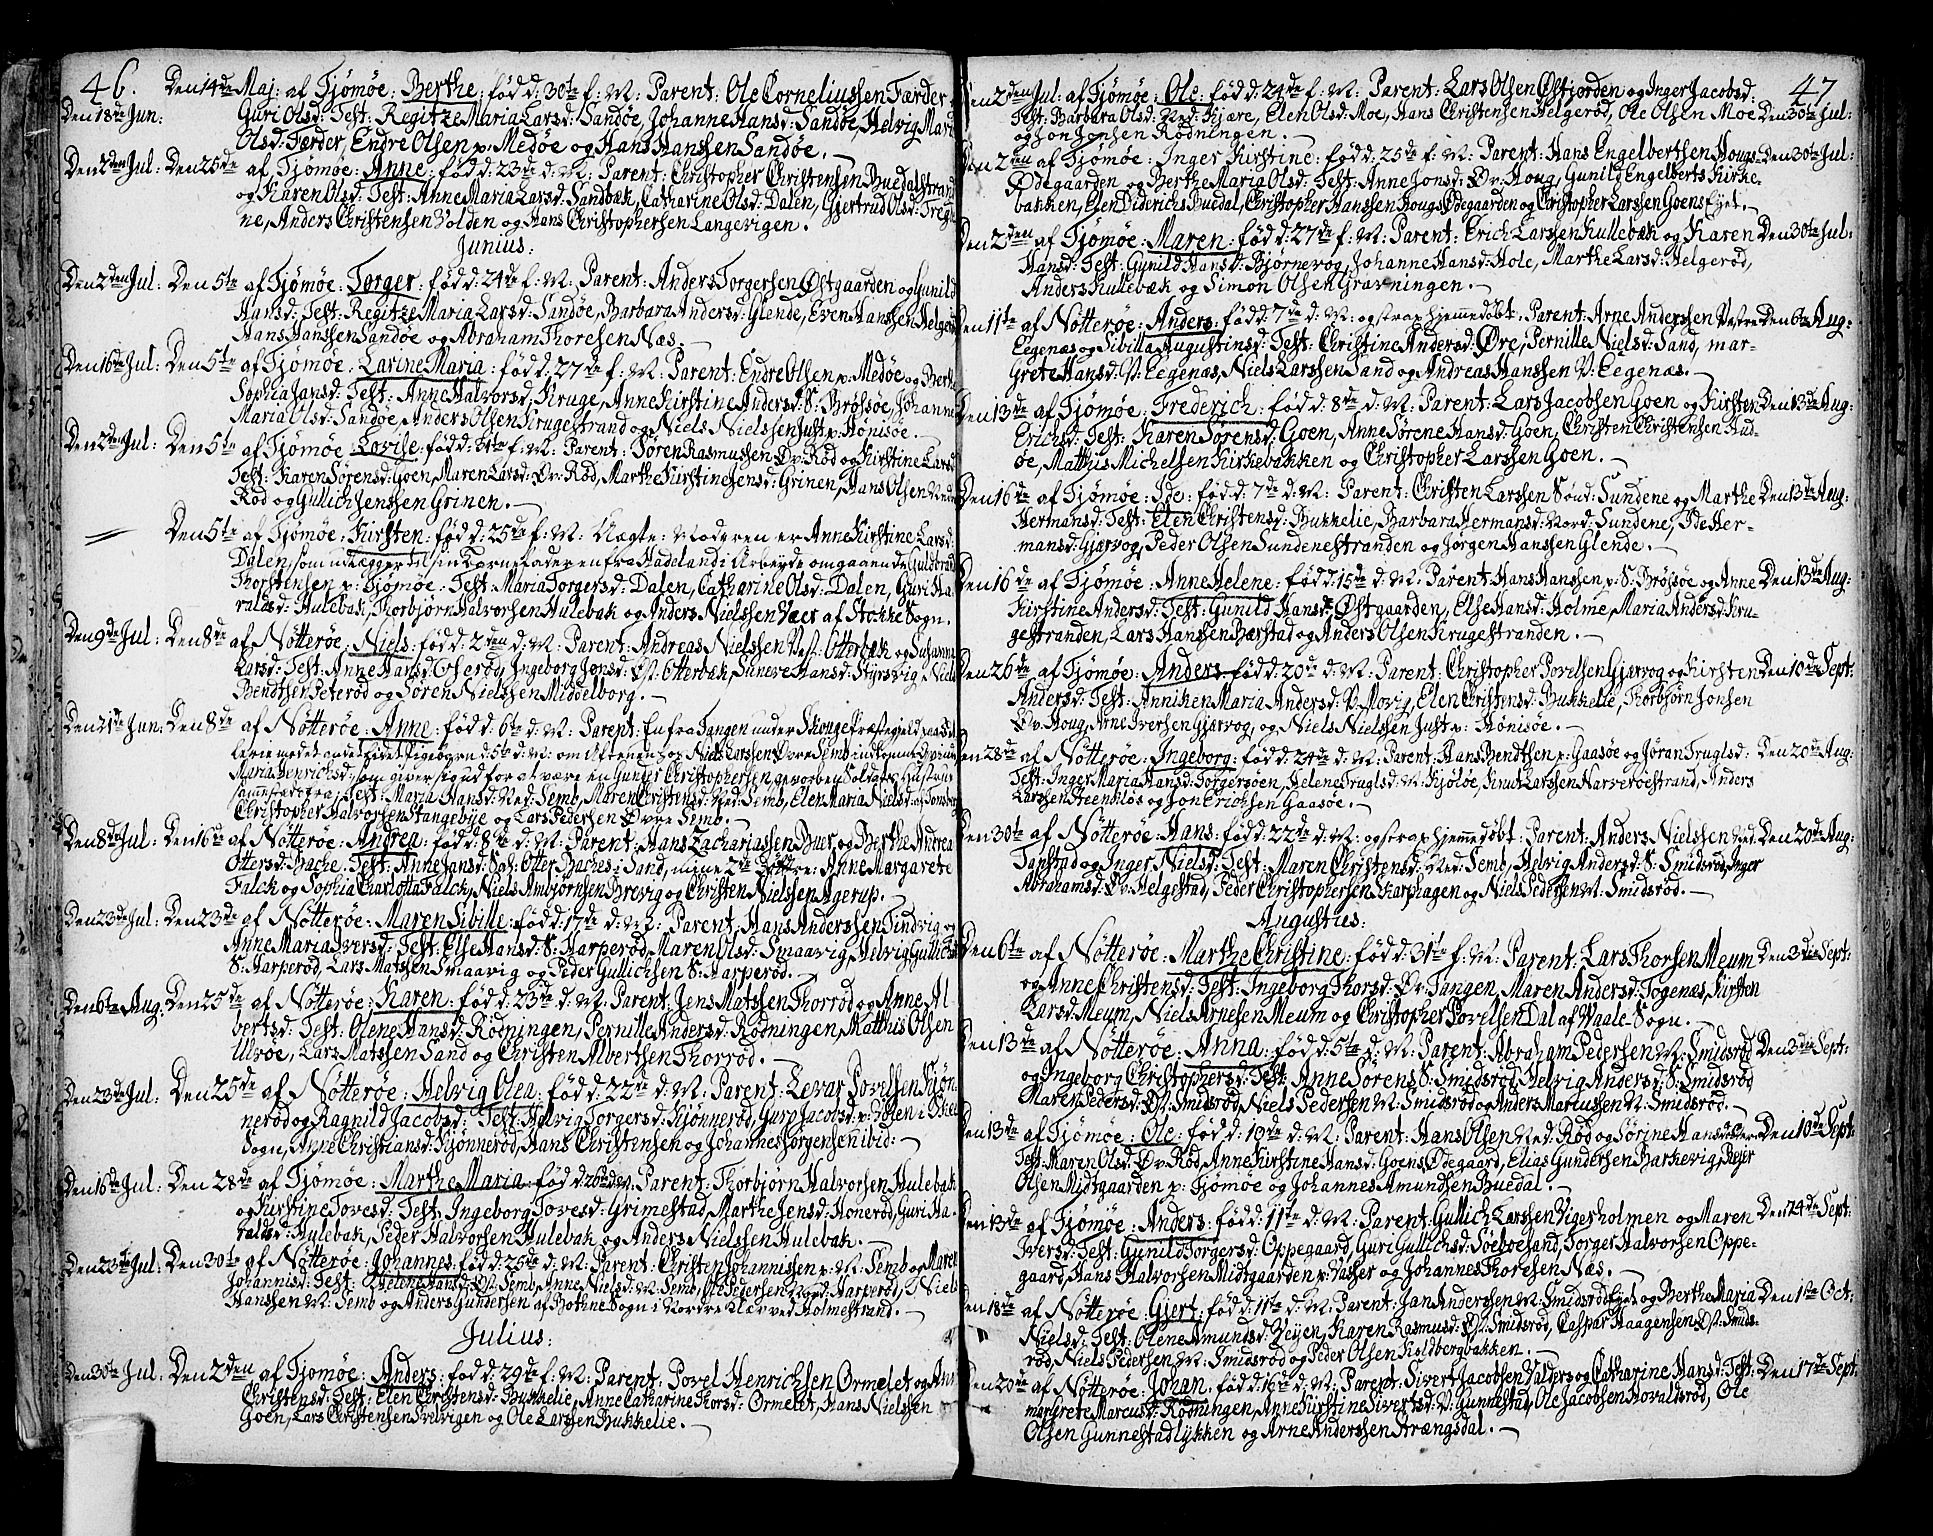 46.
Den 14de Maj: af Tjømøe: Berthe: fød d: 30te f: M: Parent: Ole Corneliussen Færder
Den 18de Jun: Guri Olsd: Test: Regitze Maria Larsd: Sandøe, Johanne Hansd: Sandøe, Helvig Maria
Olsd: Færder, Endre Olsen p: Medøe og Hans Hanssen Sandøe.
Den 2den Jul: Den 25de af Tjømøe: Anne: fød d: 23de d: M: Parent: Christopher Christensen Buedalstrand
og Karen Olsd: Test: Anne Maria Larsd: Sandbæk, Catharine Olsd: Dalen, Gjertrud Olsd: Tregte-
ne, Anders Christensen Volden og Hans Christophersen Langevigen.
Junius:
Den 2den Jul: Den 5te af Tjømøe: Torger: fød d: 24de f: M: Parent: Anders Torgersen Østgaarden og Gunild
Hansd: Test: Regitze Maria Larsd: Sandøe, Barbara Andersd: Glende, Even Hanssen Helgerød
Hans Hanssen Sandøe og Abraham Thoresen Næs.
Den 16de Jul: Den 5te af Tjømøe: Larine Maria: fød d: 27de f: M: Parent: Endre Olsen p: Medøe og Berthe
Sophia Jansd: Test: Anne Halvorsd: Kruge, Anne Kirstine Andersd: S: Brøssøe, Johanne
Maria Olsd: Sandøe, Anders Olsen Krugestrand og Niels Nielssen Just p: Hønisøe.
Den 2den Jul: Den 5te af Tjømøe: Lovise: fød d: 31te f: M: Parent: Søren Rasmussen Øv: Rød og Kirstine Larsd:
Test: Karen Sørensd: Goen, Maren Larsd: Øv: Rød, Marthe Kirstine Jensd: Grinen, Hans Olsen Nedre
Rød og Gullich Jenssen Grinen.
Den 5te af Tjømøe: Kirsten: fød d: 25de f: M: Uægte: Moderen er Anne Kirstine Larsd:
Dalen, som udlægger til sin Barnefader en fra Hadeland i Arbeyde omgaaende Guldbrand
Thorstensen p: Tjømøe: Test: Maria Torgersd: Dalen, Catharine Olsd: Dalen, Guri Ha-
raldsd: Hulebak, Thorbjørn Halvorsen Hulebak og Anders Nielssen Væer af Stokke Sogn.
Den 9de Jul: Den 8de af Nøtterøe: Niels: fød d: 2den d: M: Parent: Andreas Nielssen Vest: Otterbæk og Susanne
Larsd: Test: Anne Hansd: Oserød, Ingeborg Jonsd: Øst: Otterbæk, Sunere Hansd: Styrsvig, Niels
Bendtsen Peterød og Søren Nielssen Middelborg.
Den 21de Jun: Den 8de af Nøtterøe: Anne: fød d: 6te d: M: Parent: En fra Tangen under Skouge Præstegield
Niels Larssen Øvre Semb
Maria Henrichsd: som giver sig ud for at være en Junger Christophersen, geworben Soldats Hustrue
Test: Maria Hansd: Ned: Semb, Maren Christensd: Ned: Semb, Elen Maria Nielsd: af Tønsberg
Christopher Halvorsen Stangebye og Lars Pedersen Øvre Semb.
Den 8de Jul: Den 16de af Nøtterøe: Andrea: fød d: 8de d: M: Parent: Hans Zachariassen Buer og Berthe Andrea
Ottersd: Bache: Test: Anne Jansd: Sal: Otter Baches i Sand, mine 2de Døttre: Anne Margarete
Falck og Sophia Charlotta Falck, Niels Ambjørnsen Brevig og Christen Nielssen Agerup.
Den 23de Jul: Den 23de af Nøtterøe: Maren Sibille: fød d: 17de d: M: Parent: Hans Anderssen Tindvig og
Anne Maria Iversd: Test: Else Hansd: S: Harperød, Maren Olsd: Smaavig, Helvig Gullichsd:
S: Harperød, Lars Matssen Smaavig og Peder Gullichsen S: Harperød.
Den 6te Aug: Den 25de af Nøtterøe: Karen: fød d: 23de d: M: Parent: Jens Matssen Thorrød og Anne Al-
bertsd: Test: Olene Hansd: Rødningen, Pernille Andersd: Rødningen, Matthis Olsen
Ulvøe, Lars Matssen Sand og Christen Albertsen Thorrød.
Den 23de Jul: Den 25de af Nøtterøe: Helvig Olea: fød d: 22de d: M: Parent: Levar Povelsen Kjøn-
nerød og Ragnild Jacobsd: Test: Helvig Torgersd: Kjønnerød, Guro Jacobsd: p: Holen i
Sogn, Anne Christiansd: Kjønnerød, Hans Christensen og Johannes Jørgensen ibid:
Den 16de Jul: Den 28de af Tjømøe: Marthe Maria: fød d: 26de d: M: Parent: Thorbjørn Halvorsen Hulebak
og Kirstine Tovesd: Test: Ingeborg Tovesd: Grimestad, Marthe Jensd: Honerød, Guri Ha-
raldsd: Hulebak, Peder Halvorsen Hulebak og Anders Nielssen Hulebak.
Den 23de Jul: Den 30te af Nøtterøe: Johannes: fød d: 25de d: M: Parent: Christen Johannissen p: N: Semb og Maren
Johannisd: Test: Helene Hansd: Øst: Semb, Anne Nielsd: N: Semb, Ole Pedersen Nord: Harperød, Niels
Hanssen N: Semb og Anders Gundersen af Botne Sogn i Nordre Klæv ved Holmestrand.
Julius:
Den 30te Jul: Den 2den af Tjømøe: Anders: fød d: 29de f: M: Parent: Povel Henrichsen Ormelet og Anne
Christensd: Test: Elen Christensd: Bukkelie, Anne Catharine Thorsd: Ormelet, Hans Nielssen
Goen, Lars Christensen Treletvigen og Ole Larssen Bukkelie.
47
Den 2den Jul: af Tjømøe: Ole: fød d: 24de f: M: Parent: Lars Olsen Østjorden og Inger Jacobsd:
Test: Barbara Olsd: Ned: Kjære, Elen Olsd: Moe, Hans Christensen Helgerød, Ole Olsen Moe Den 30te Jul:
og Jon Jonsen Rødningen.
Den 2den af Tjømøe: Inger Kirstine: fød d: 25de f: M: Parent: Hans Engelbertsen Hougs- Den 30te Jul:
Ødegaarden og Berthe Maria Olsd: Test: Anne Jonsd: Øv: Houg, Gunild Engelberts Kirke-
bakken, Elen Diderichs Buedal, Christopher Hanssen Hougs Ødegaarden og Christopher Larssen Goens Ejet.
Den 2den af Tjømøe: Maren: fød d: 27de f: M: Parent: Erich Larssen Kullebæk og Karen Den 30te Jul:
Hansd: Test: Gunild Hansd: Bjørnevog, Johanne Hansd: Hole, Marthe Larsd: Helgerød,
Anders Kullebæk og Simon Olsen Gravningen.
Den 11te af Nøtterøe: Anders: fød d: 7de d: M: og strax hjemmedøbt: Parent: Arne Anderssen Vestre Den 6te Aug:
Eegenæs og Sibilla Augustinsd: Test: Christine Andersd: Øre, Pernille Nielsd: Sand, mar-
grete Hansd: V: Eegenæs, Niels Larssen Sand og Andreas Hanssen V: Eegenæs.
Den 13de af Tjømøe: Frederich: fød d: 8de d: M: Parent: Lars Jacobsen Goen og Kirsten Den 13de Aug:
Erichsd: Test: Karen Sørensd: Goen, Anne Sørene Hansd: Goen, Christen Christensen Hud-
øe, Matthis Michelsen Kirkebakken og Christopher Larssen Goen.
Den 16de af Tjømøe: Ide: fød d: 7de d: M: Parent: Christen Larssen Sønd: Sundene og Marthe Den 13de Aug:
Hermansd: Test: Elen Christensd: Bukkelie, Barbara Hermansd: Nord: Sundene, Ide Her-
mansd: Gjervog, Peder Olsen Sundenestranden og Jørgen Hanssen Glende.
Den 16de af Tjømøe: Anne Helene: fød d: 15de d: M: Parent: Hans Hanssen p: S: Brøjsøe og Anne Den 13de Aug:
Kirstine Andersd: Test: Gunild Hansd: Østgaarden, Else Hansd: Holme, Maria Andersd: Kru-
gestranden, Lars Hanssen Bærstad og Anders Olsen Krugestranden.
Den 26de af Tjømøe: Anders: fød d: 20de d: M: Parent: Christopher Povelsen Gjervog og Kirsten Den 10de Sept:
Andersd: Test: Anniken Maria Andersd: Ø: Movig, Elen Christensd: Bukkelie, Thorbjørn Jonsen
Øv: Houg, Arne Iversen Gjervog, og Niels Nielssen Just p: Hønisøe.
Den 28de af Nøtterøe: Ingeborg: fød d: 24de d: M: Parent: Hans Bendtsen p: Gaasøe og Jøran Truglsd: Den 20de Aug:
Test: Inger Maria Hansd: Torgersøen, Helene Truglsd: N: Kjøløe, Knut Larssen Narverøestrand, Anders
Larssen Steenkløs og Jon Erichsen Gaasøe.
Den 30te af Nøtterøe: Hans: fød d: 22de d: M: og strax hjemmedøbt: Parent: Anders Nielssen Ned: Den 20de Aug:
Tanstad og Inger Nielsd: Test: Maren Christensd: Ned: Semb, Helvig Andersd: S: Smidsrød, Inger
Abrahamsd: Øv: Helgestad, Peder Christophersen Skarphagen og Niels Pedersen N: Smidsrød.
Augustus:
Den 6te af Nøtterøe: Marthe Christine: fød d: 31te f: M: Parent: Lars Thorsen Meum Den 3die Sept:
og Anne Christensd: Test: Ingeborg Thorsd: Øv: Tangen, Maren Andersd: Togenæs, Kirsten
Larsd: Meum, Niels Arnesen Meum og Christopher Povelsen Dal af Waale Sogn.
Den 13de af Nøtterøe: Anna: fød d: 5te d: M: Parent: Abraham Pedersen N: Smidsrød Den 3die Sept:
og Ingeborg Christophersd: Test: Anne Sørens S: Smidsrød, Helvig Andersd: S: Smidsrød
Maren Pedersd: Øst: Smidsrød, Niels Pedersen N: Smidsrød og Anders Marcussen N: Smidsrød.
Den 13de af Tjømøe: Ole: fød d: 10de d: M: Parent: Hans Olsen Ned: Rød og Sørine Hansd: Den 10de Sept:
Test: Maren Olsd: Øv: Rød, Anne Kirstine Hansd: Goens Ødegaard, Elias Gundersen Barkevig, Bejer
Olsen Midtgaarden p: Tjømøe og Johannes Amundsen Buedal.
Den 13de af Tjømøe: Anders: fød d: 11te d: M: Parent: Gullich Larssen Vigerholmen og Maren Den 24de Sept:
Iversd: Test: Gunild Torgersd: Oppegaard, Guri Gullichsd: Søeboesand, Torger Halvorsen Oppe-
gaard, Hans Halvorsen Midtgaarden p: Vasser og Johannes Thoresen Næs.
Den 18de af Nøtterøe: Gjert: fød d: 11te d: M: Parent: Jan Andersen N: Smidsrød Ejet og Berthe Maria Den 1ste Oct:
Nielsd: Test: Olene Amundsd: Vejen, Karen Rasmusd: Øst: Smidsrød, Caspar Haagensen Øst: Smids-
rød, Niels Pedersen N: Smidsrød og Peder Olsen Koldbergbakken.
Den 20de af Nøtterøe: Johan: fød d: 16de d: M: Parent: Sivert Jacobsen Valders og Catharine Hansd: Test: Den 17de Sept:
margrete Marcusd: Rødningen, Anne Kirstine Sivertsd: V: Gunnestad, Ole Jacobsen Hovaldsrød, Ole
Olsen Gunnestadløkken og Arne Anderssen Strængsdal.